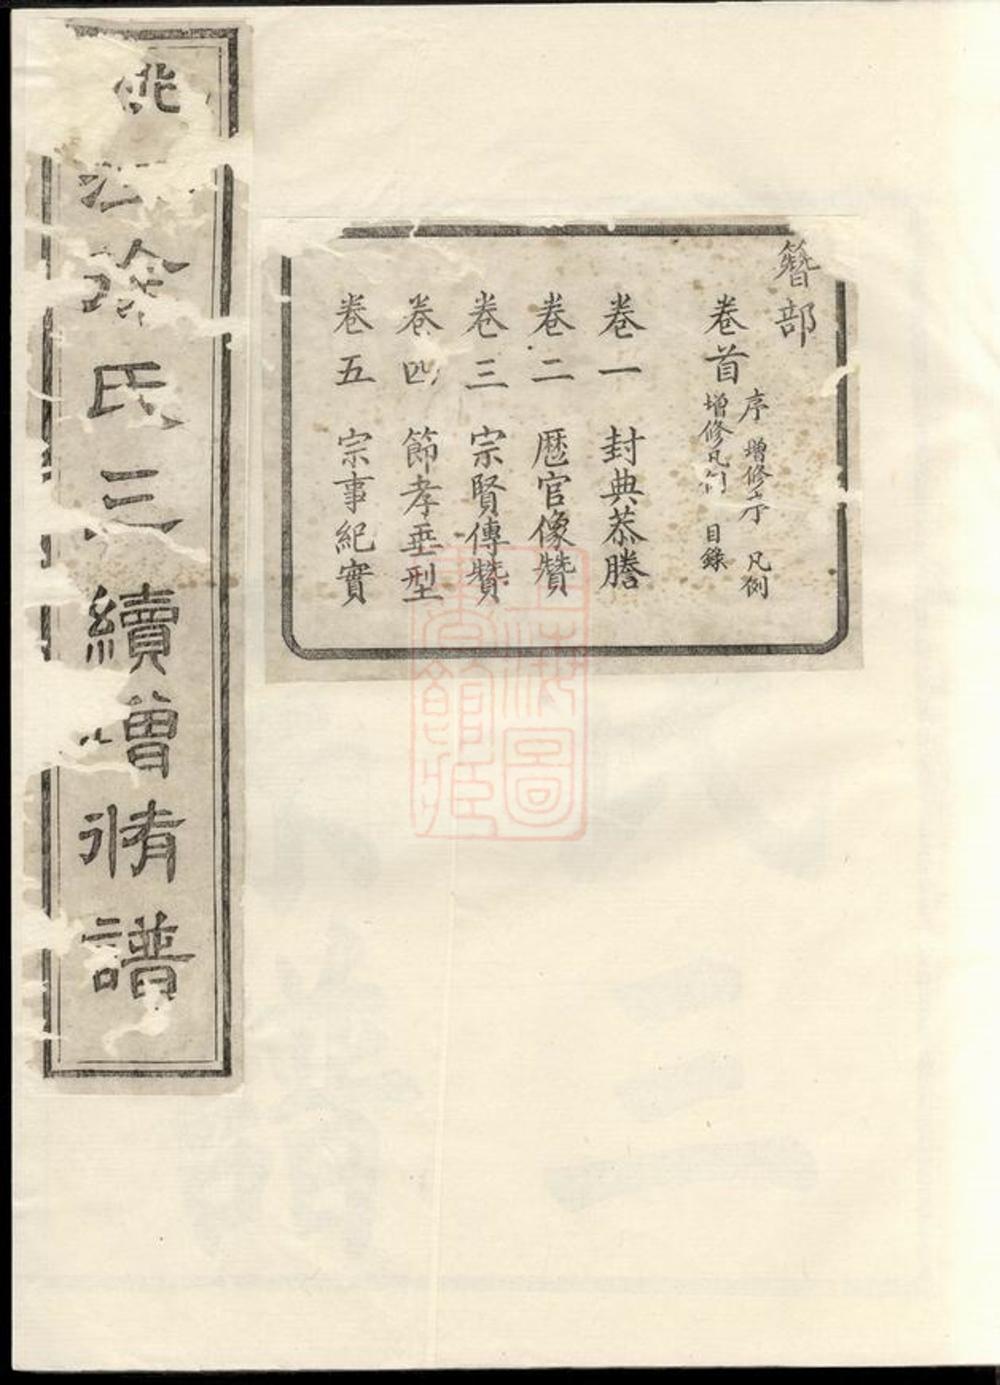 簪部
卷首
序 增修序 凡例
增修凡例 目錄
卷一 封典恭謄
卷二 歷官像贊
卷三 宗賢傳贊
卷四 節孝垂型
卷五 宗事紀實
姚江徐氏三續增脩譜
上海圖
書館藏